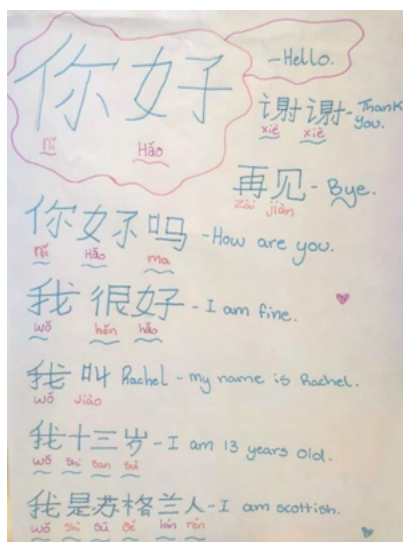 你好 -Hello.
nǐ Hǎo
谢谢 - Thank you.
xiè xiè
再见 - Bye.
Zài jiàn
你好吗 - How are you.
nǐ Hǎo ma
我很好 - I am fine.
wǒ hěn hǎo
我叫 Rachel - my name is Rachel.
wǒ Jiào
我十三岁 - I am 13 years old.
wǒ shí san suì
我是苏格兰人 - I am scottish.
wǒ shì Sū Gé lán rén